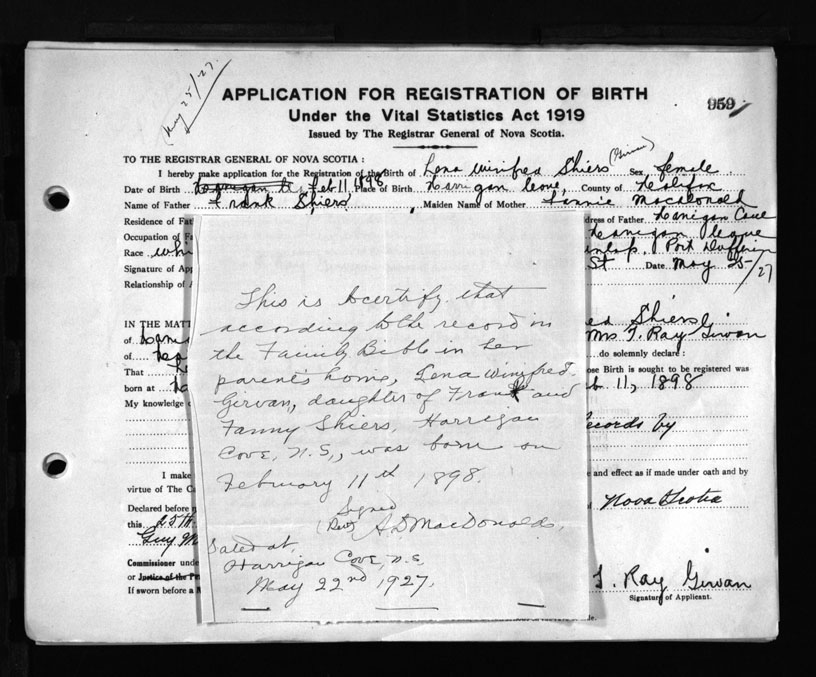 May 25/27.
APPLICATION FOR REGISTRATION OF BIRTH
959
Under the Vital Statistics Act 1919
Issued by The Registrar General of Nova Scotia.
TO THE REGISTRAR GENERAL OF NOVA SCOTIA:
I hereby make application for the Registration of the Birth of Lena Winifred Shiers (Girvan) Sex female
Date of Birth Feb 11 1898 Place of Birth Harrigan Cove, County of Halifax
Name of Father Frank Shiers, Maiden Name of Mother Fannie Macdonald
Residence of Fat dress of Father Harrigan Cove
Occupation of Fa
Race Whi Port Dufferin
Signature of Ap St Date May 25/27
Relationship of A
This is to certify that
according to the record in
the Family Bible in her
parents home, Lena Winifred
Girvan, daughter of Frank and
Fanny Shiers, Harrigan
Cove, N.S., was born on
February 11th 1898.
Signed
(Rev) A. D. MacDonald.
Dated at,
Harrigan Cove, N.S.
May 22nd 1927.
IN THE MATT ed Shiers
of Mrs T. Ray Girvan
of do solemnly declare:
That ose Birth is sought to be registered was
born at b. 11, 1898
My knowledge o ecords by
I make and effect as if made under oath and by
virtue of The Ca
Declared before m Nova Scotia
this 25th
Guy M
Commissioner unde
or Justice of the Pe T. Ray Girvan
If sworn before a Signature of Applicant.
de.